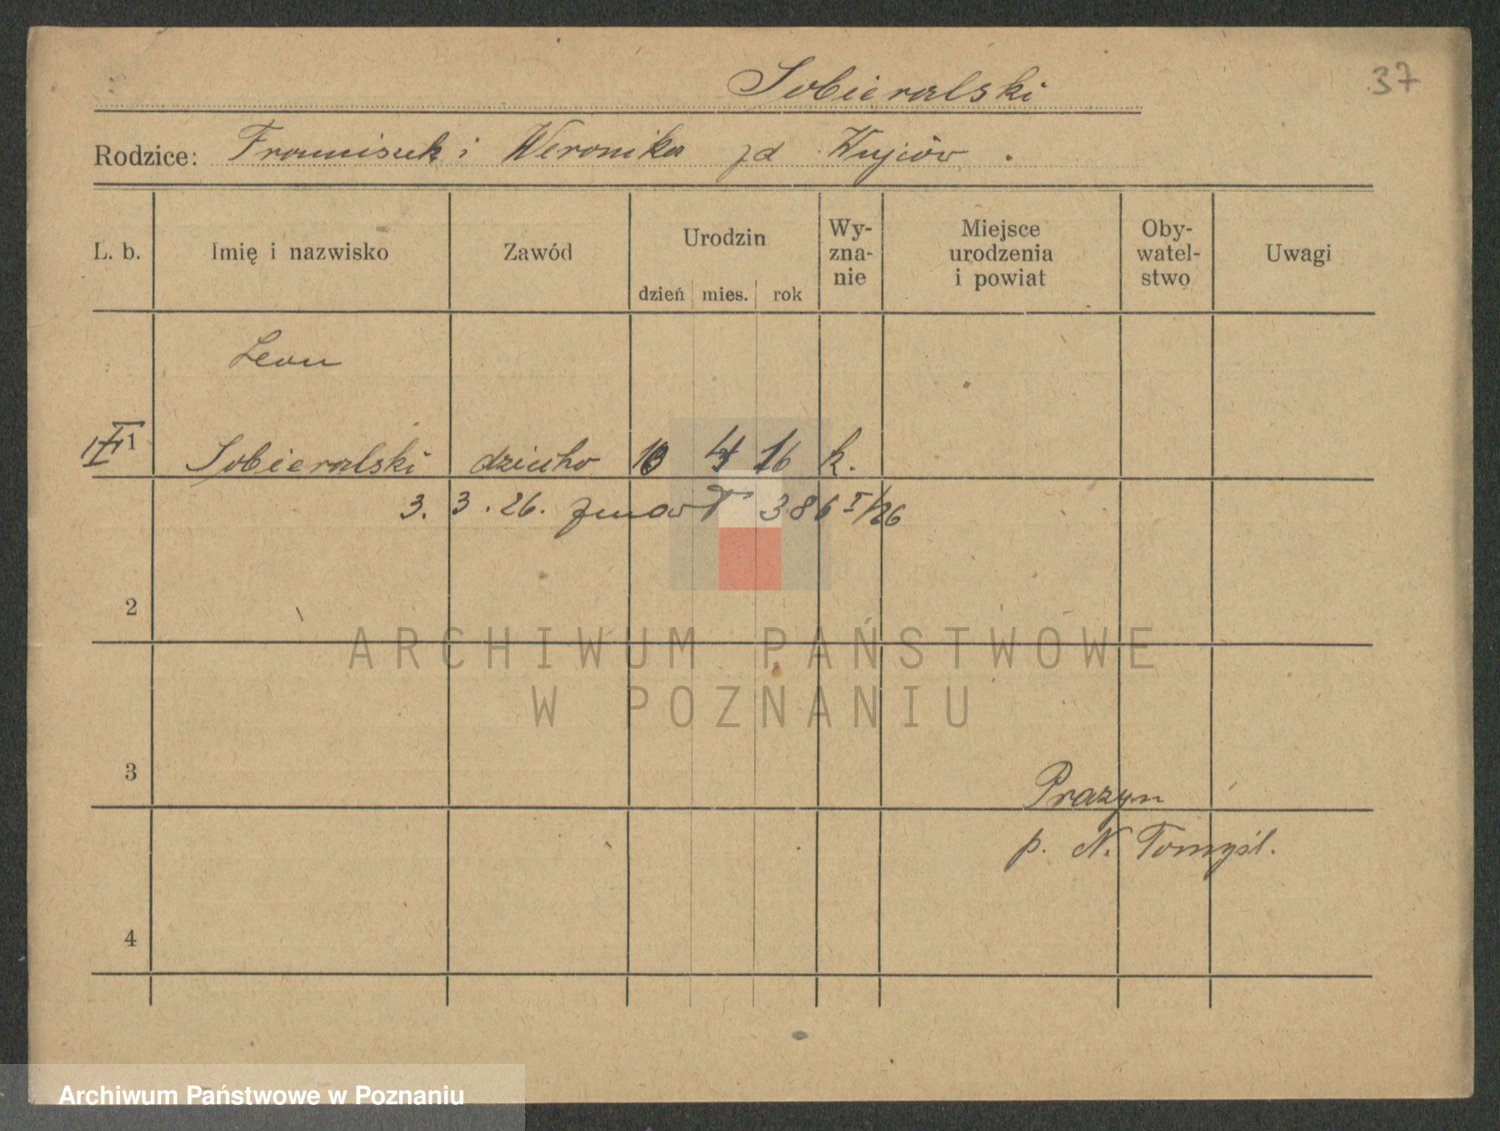 Sobieralski
37
Rodzice: Franciszek i Weronika zd Wujców.
L. b. Imię i nazwisko Zawód Urodzin Wy-zna-nie Miejsce urodzenia i powiat Oby-watel-stwo Uwagi
dzień mies. rok
Leon
1 Sobieralski dziecko 10 4 16 k.
3. 3. 26. zmarł 386 I/26
2
ARCHIWUM PAŃSTWOWE
W POZNANIU
3
Prazyn
p. N. Tomyśl.
4
Archiwum Państwowe w Poznaniu